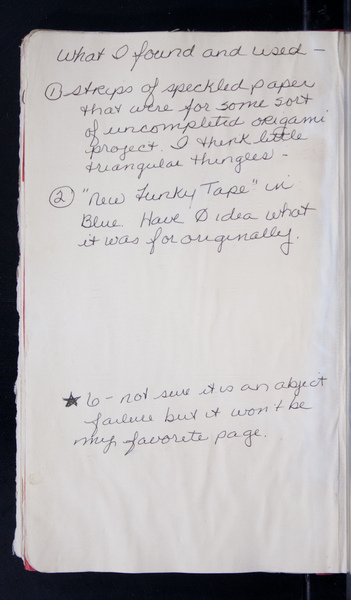 What I found and used -
① strips of speckled paper
that were for some sort
of uncompleted origami
project. I think little
triangular thingies -
② "New Funky Tape" in
Blue. Have Ø idea what
it was for originally.
★ 6 - not sure it is an abject
failure but it won't be
my favorite page.